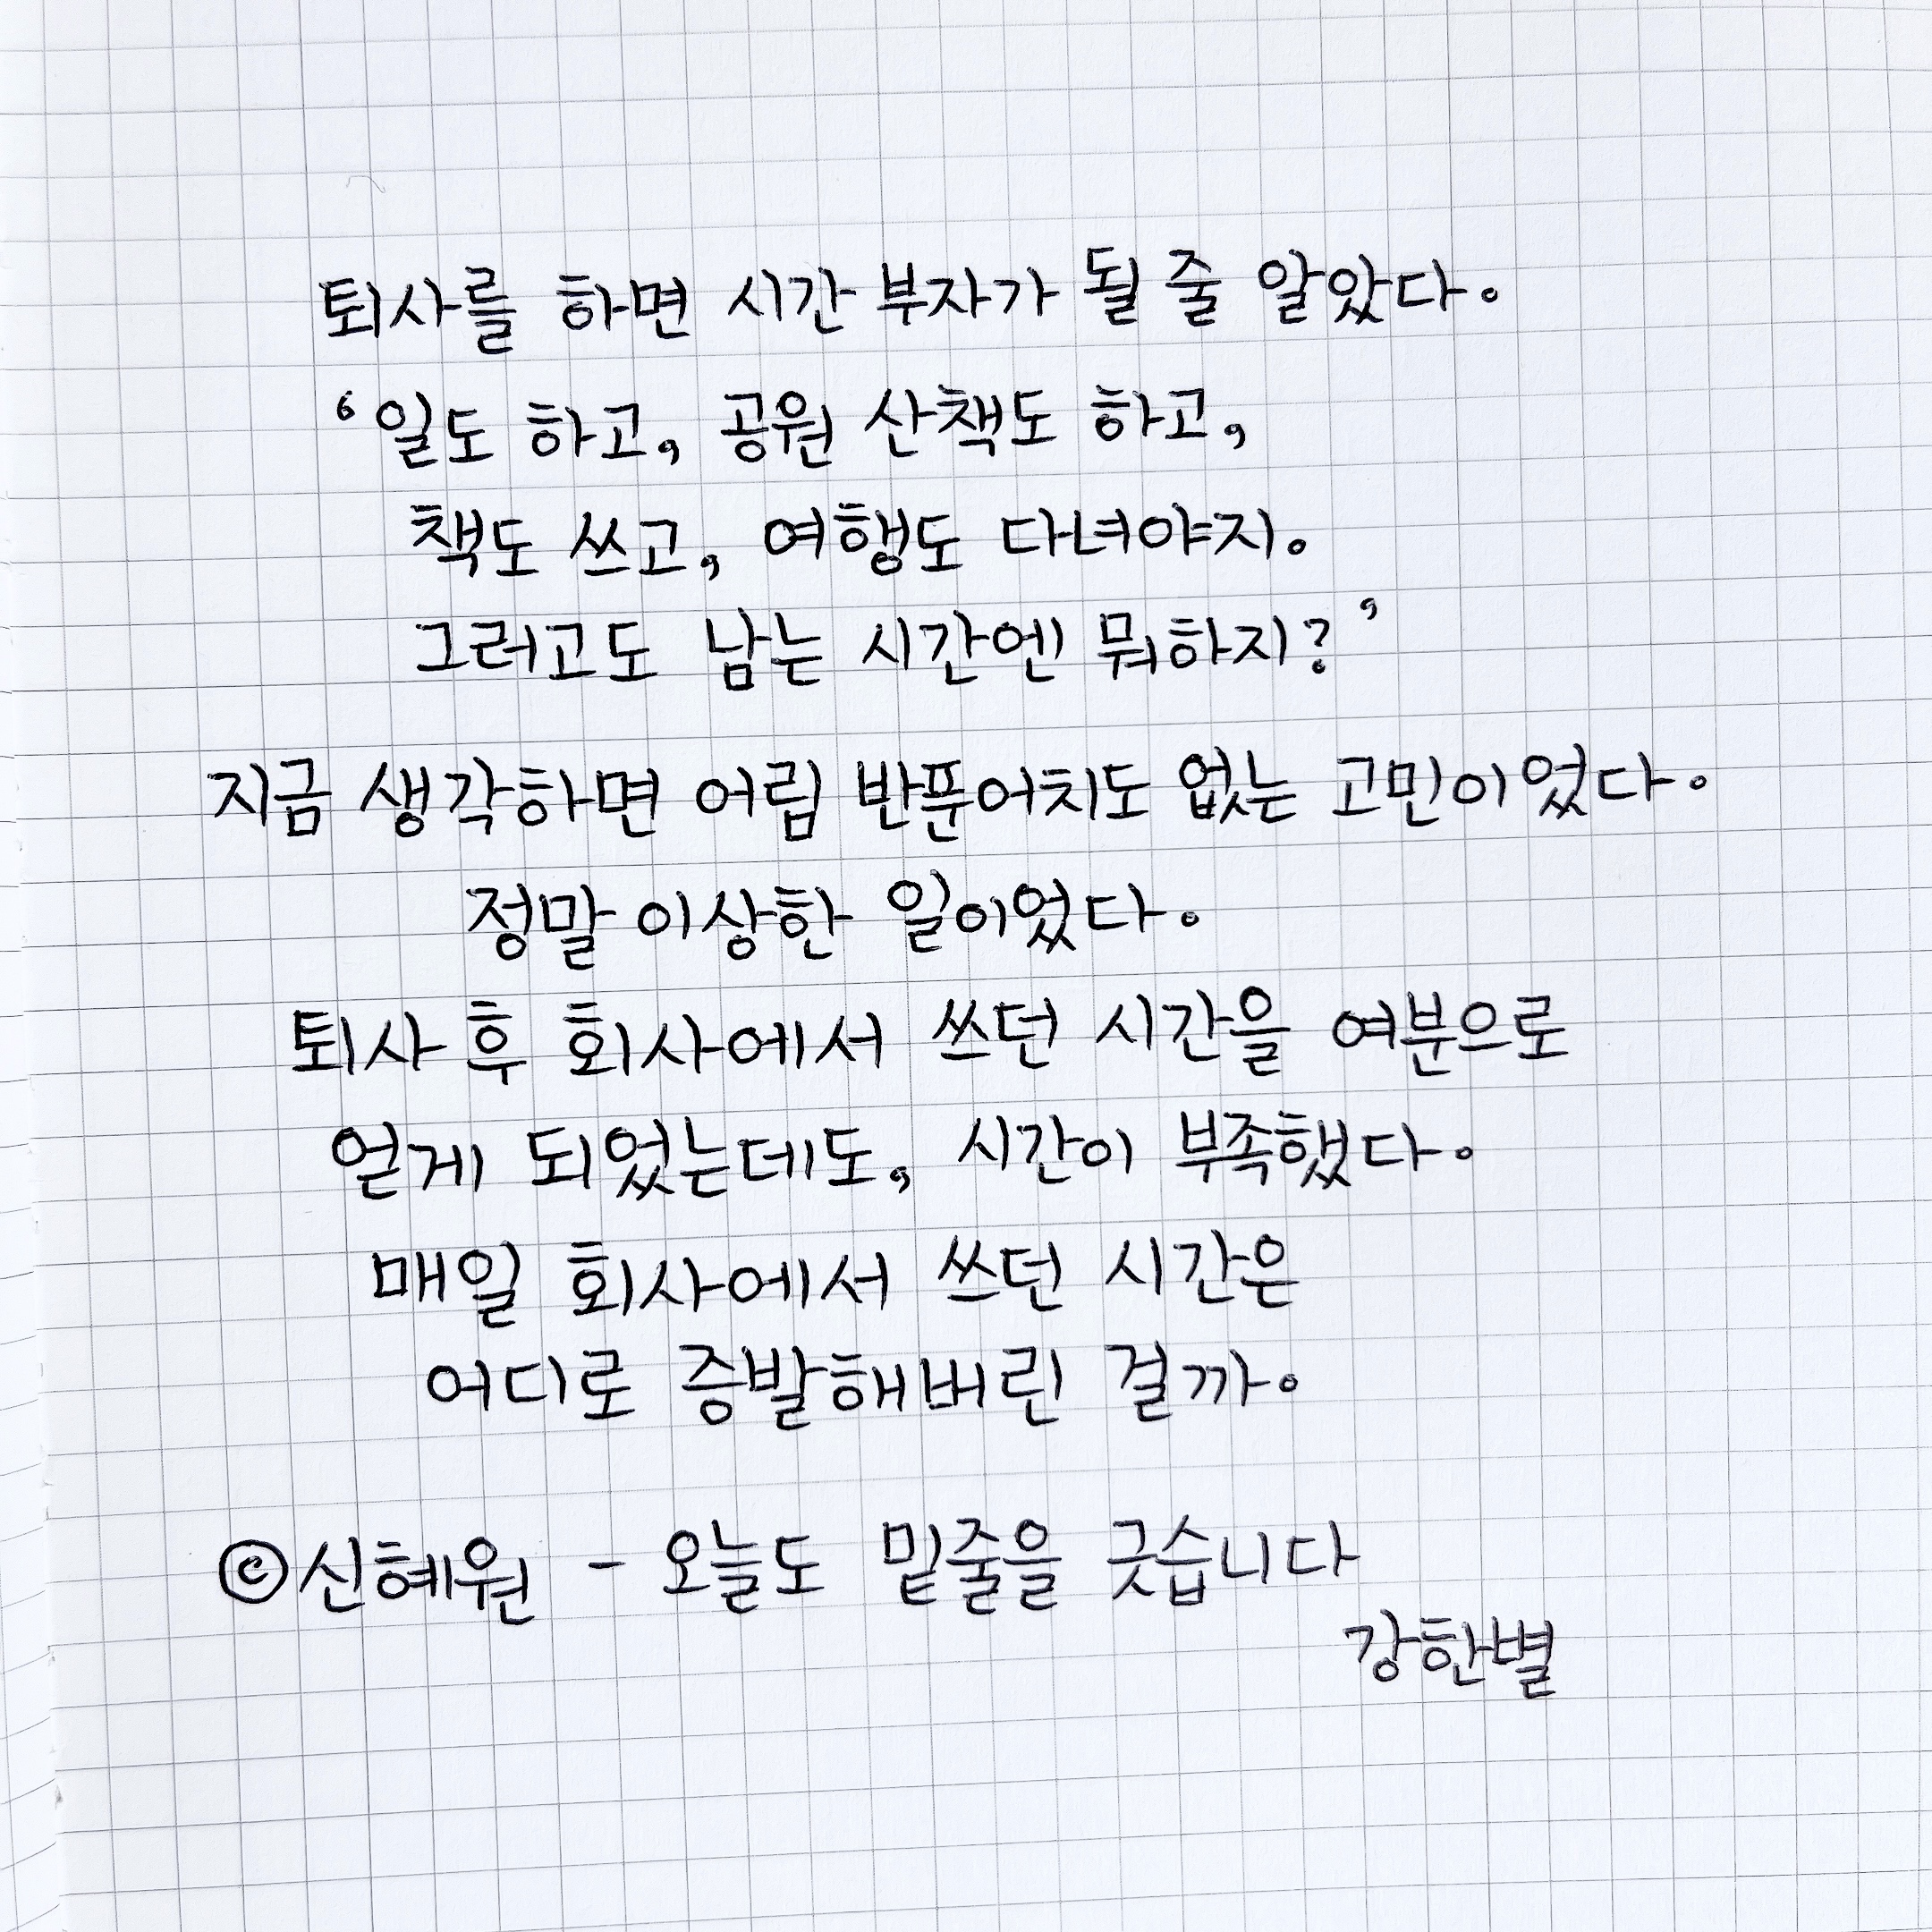 퇴사를 하면 시간 부자가 될 줄 알았다.
‘일도 하고, 공원 산책도 하고,
책도 쓰고, 여행도 다녀야지.
그러고도 남는 시간엔 뭐하지?’
지금 생각하면 어림 반푼어치도 없는 고민이었다.
정말 이상한 일이었다.
퇴사 후 회사에서 쓰던 시간을 여분으로
얻게 되었는데도, 시간이 부족했다.
매일 회사에서 쓰던 시간은
어디로 증발해버린 걸까.
©신혜원 - 오늘도 밑줄을 긋습니다
강한별